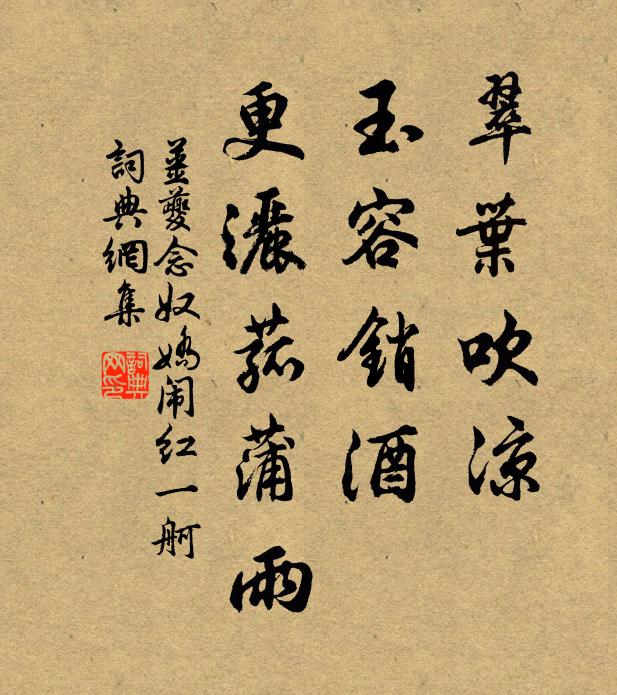 翠葉吹涼
玉容銷酒
更灑菰蒲雨
姜夔念奴嬌闹红一舸
詞典網集
詞典网印